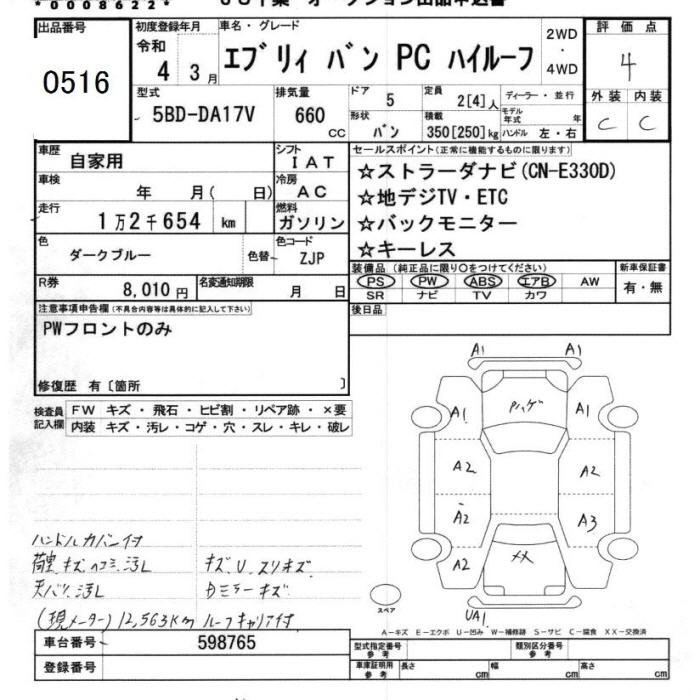 *0008622*
出品番号
0516
初度登録年月
令和
4 3月
車名・グレード
エブリィ バン PC ハイルーフ
2WD
・
4WD
評価点
4
外装 内装
C C
型式
5BD-DA17V
排気量
660 CC
ドア 5
形状 バン
定員 2[4]人
積載 350[250]kg
ディーラー・並行
モデル年式 年
ハンドル 左・右
車歴
自家用
シフト
IAT
車検
年 月( 日)
冷房
AC
走行
1万2千654 km
燃料
ガソリン
色
ダークブルー
色替
色コード
ZJP
R券
8,010円
名変通知期限
月 日
セールスポイント(正常に機能するものに限ります)
☆ストラーダナビ(CN-E330D)
☆地デジTV・ETC
☆バックモニター
☆キーレス
装備品(純正品に限り○をつけてください)
PS PW ABS エアB AW
SR ナビ TV カワ
新車保証書
有・無
後日品
注意事項申告欄(不具合内容等は具体的に記入して下さい)
PWフロントのみ
修復歴 有〔箇所 〕
検査員記入欄
FW キズ・飛石・ヒビ割・リペア跡・×要
内装 キズ・汚レ・コゲ・穴・スレ・キレ・破レ
ハンドルカバー付
荷室キズヘコミ汚レ
キズU.スリキズ
天バリ汚レ
Dミラーキズ
(現メーター)12,563Km ルーフキャリア付
A1 A1
A1 Pハゲ A1
A2 A2
A2 A3
A2 XX
UA1
スペア
A-キズ E-エクボ U-凹み W-補修跡 S-サビ C-腐食 XX-交換済
車台番号
598765
登録番号
型式指定番号 参考
類別区分番号 参考
車庫証明用 参考
長さ cm
幅 cm
高さ cm